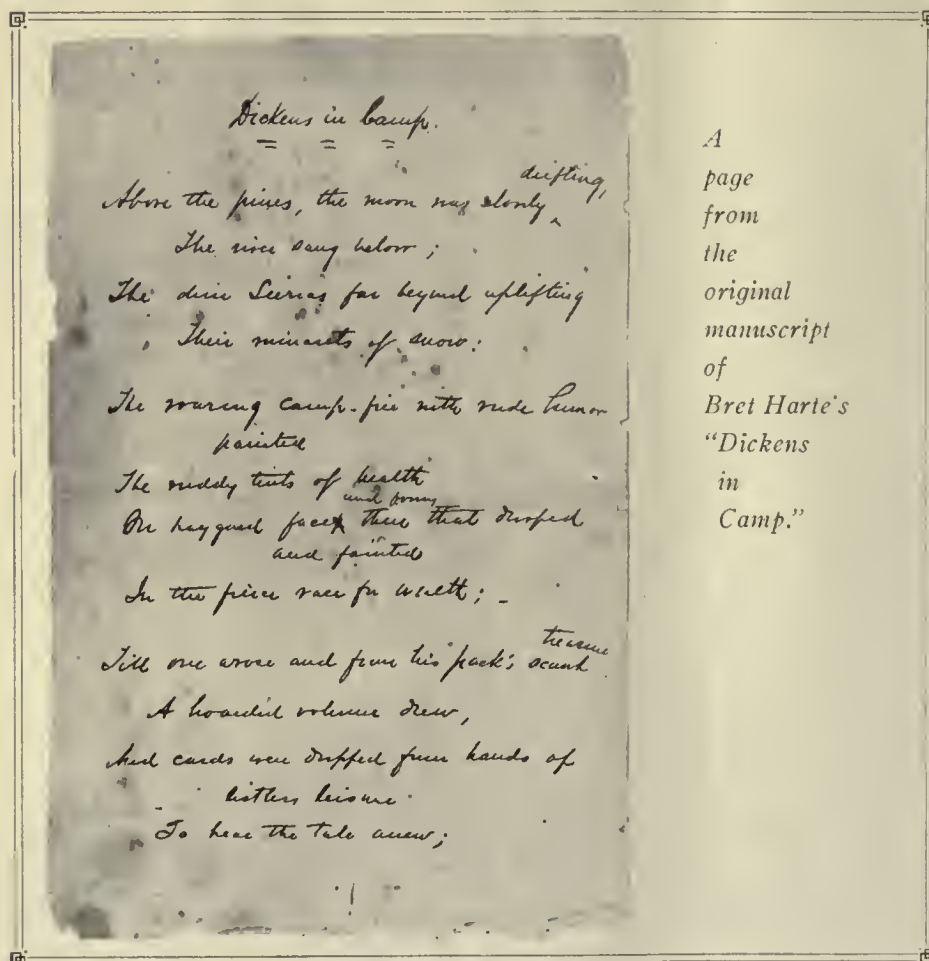 Dickens in Camp.
drifting,
Above the pines, the moon was slowly
The river sang below;
The dim Sierras far beyond uplifting
Their minarets of snow:
The roaring camp-fire with rude humor
painted
The ruddy tints of health
and form
On haggard face then that drooped
and fainted
In the fierce race for wealth;
treasure
Till one arose and from his pack's scant
A hoarded volume drew,
And cards were dropped from hands of
listless leisure
To hear the tale anew;
A
page
from
the
original
manuscript
of
Bret Harte's
"Dickens
in
Camp."